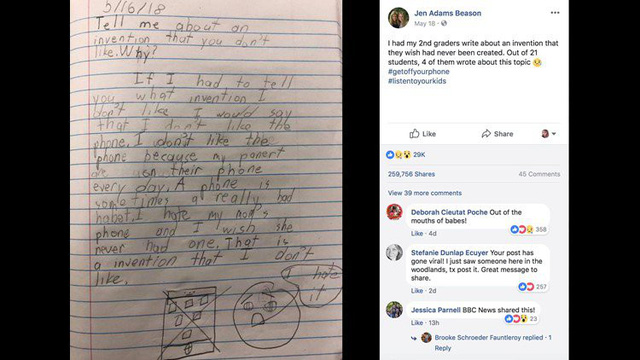 5/16/18
Tell me about an
invention that you don't
like. Why?
If I had to tell
you what invention I
don't like I would say
that I don't like the
phone. I don't like the
phone because my panert
are on their phone
every day. A phone is
somtimes a really bad
habet. I hate my mom's
phone and I wish she
never had one. That is
a invention that I don't
like.
I hate
it
Jen Adams Beason
May 18 ·
I had my 2nd graders write about an invention that
they wish had never been created. Out of 21
students, 4 of them wrote about this topic 😢
#getoffyourphone
#listentoyourkids
Like
Share
29K
259,756 Shares
45 Comments
View 39 more comments
Deborah Cieutat Poche Out of the
mouths of babes!
358
Like · 4d
Stefanie Dunlap Ecuyer Your post has
gone viral! I just saw someone here in the
woodlands, tx post it. Great message to
share.
257
Like · 2d
Jessica Parnell BBC News shared this!
23
Like · 13h
Brooke Schroeder Fauntleroy replied · 1
Reply